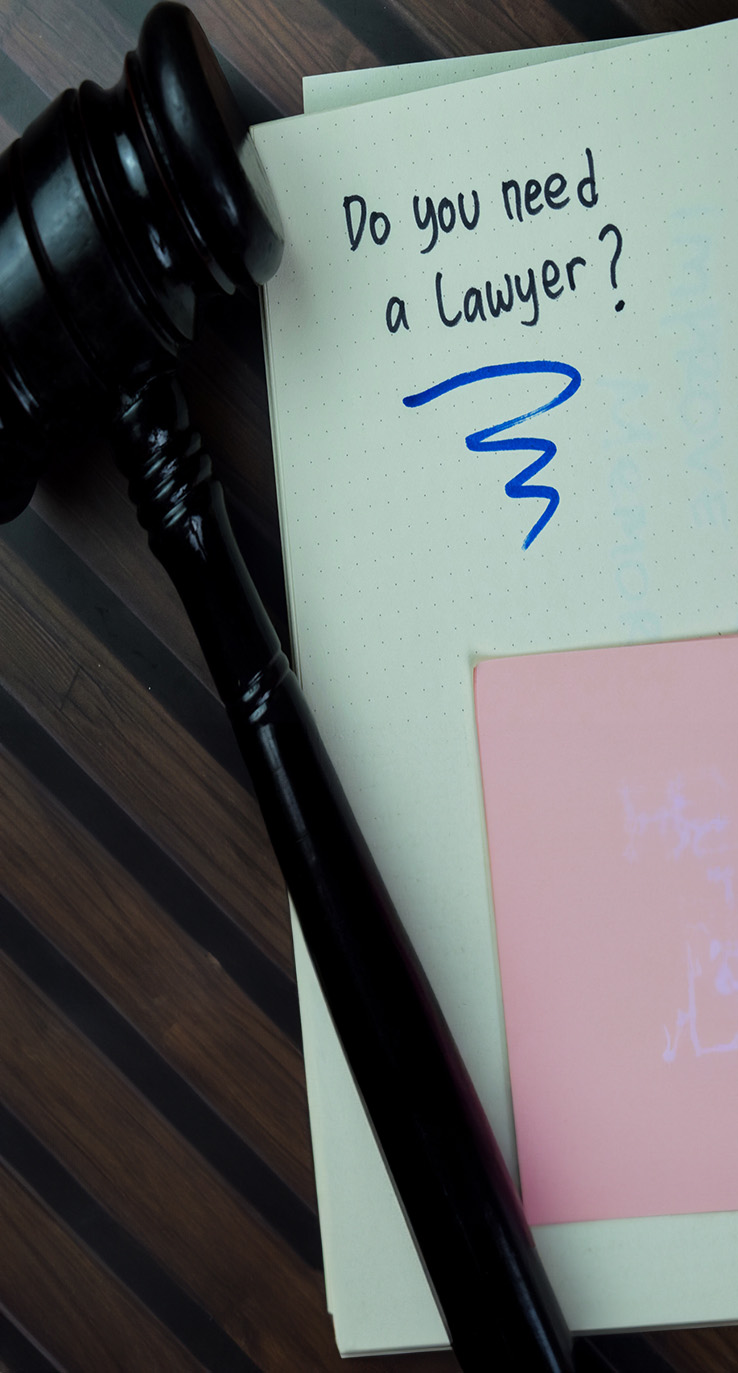 Do you need
a Lawyer?